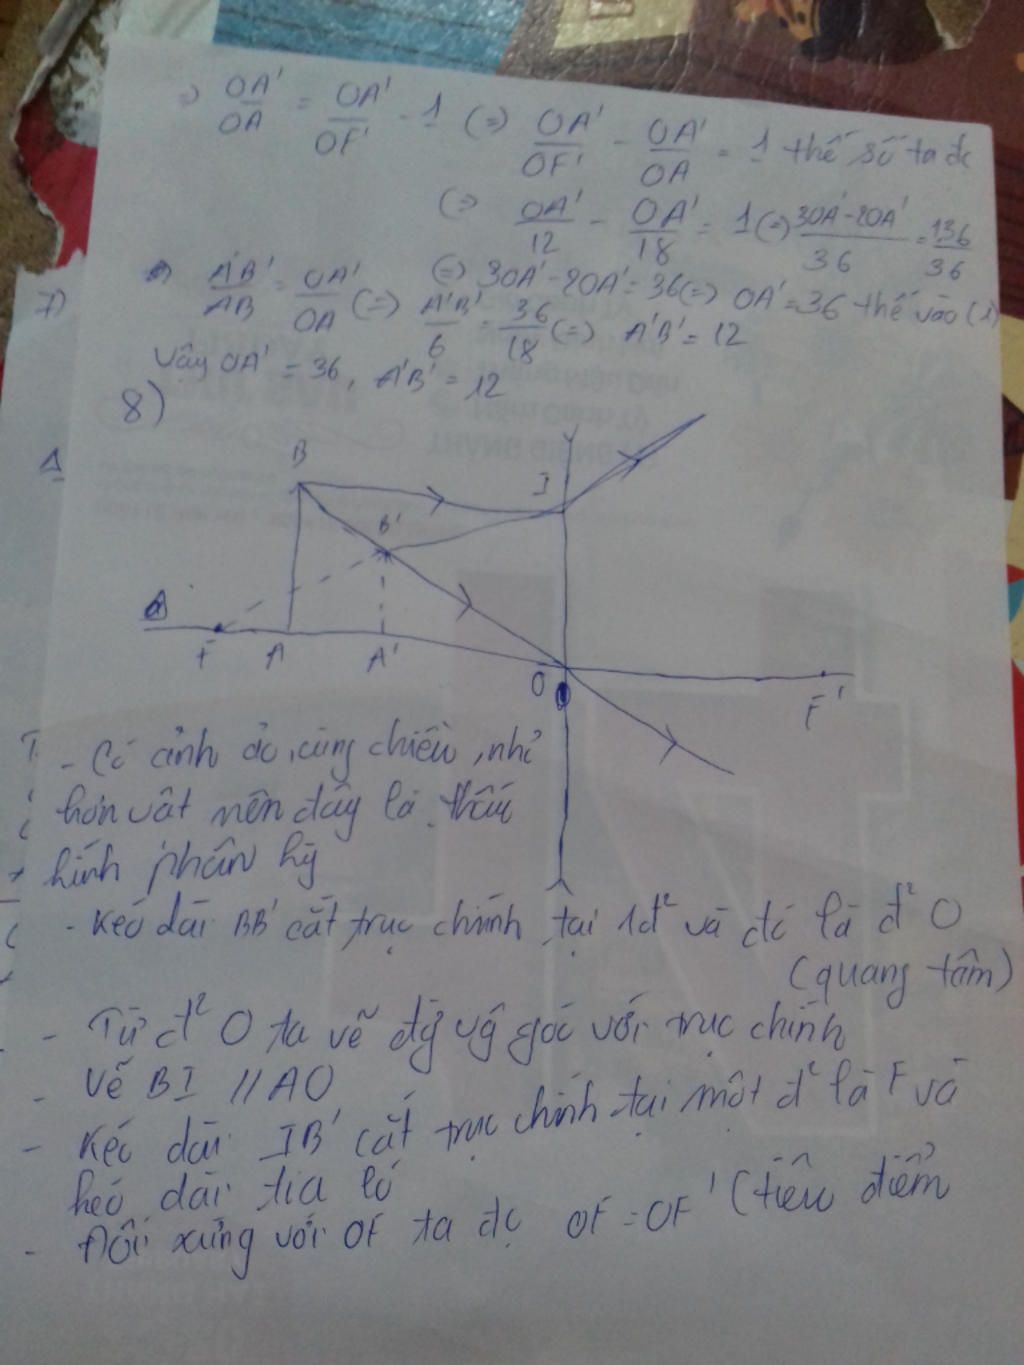 => OA'/OA = OA'/OF' - 1 (=) OA'/OF' - OA'/OA = 1 thế số ta đc
(=> OA'/12 - OA'/18 = 1 (=) 3OA'-2OA'/36 = 136/36
A'B'/AB = OA'/OA (=) 3OA'-2OA' = 36 (=) OA' = 36 thế vào (1)
7)
(=) A'B'/6 = 36/18 (=) A'B' = 12
Vậy OA' = 36, A'B' = 12
8)
Δ
B
I
B'
Δ
F
A
A'
O
F'
- Có ảnh ảo, cùng chiều, nhỏ
hơn vật nên đây là thấu
kính phân kỳ
- Kéo dài BB' cắt trục chính tại 1đ² và đó là đ² O
(quang tâm)
- Từ đ² O ta vẽ đg vg góc với trục chính
- Vẽ BI // AO
- Kéo dài IB' cắt trục chính tại một đ² là F và
kéo dài tia ló
- Đối xứng với OF ta đc OF = OF' (tiêu điểm